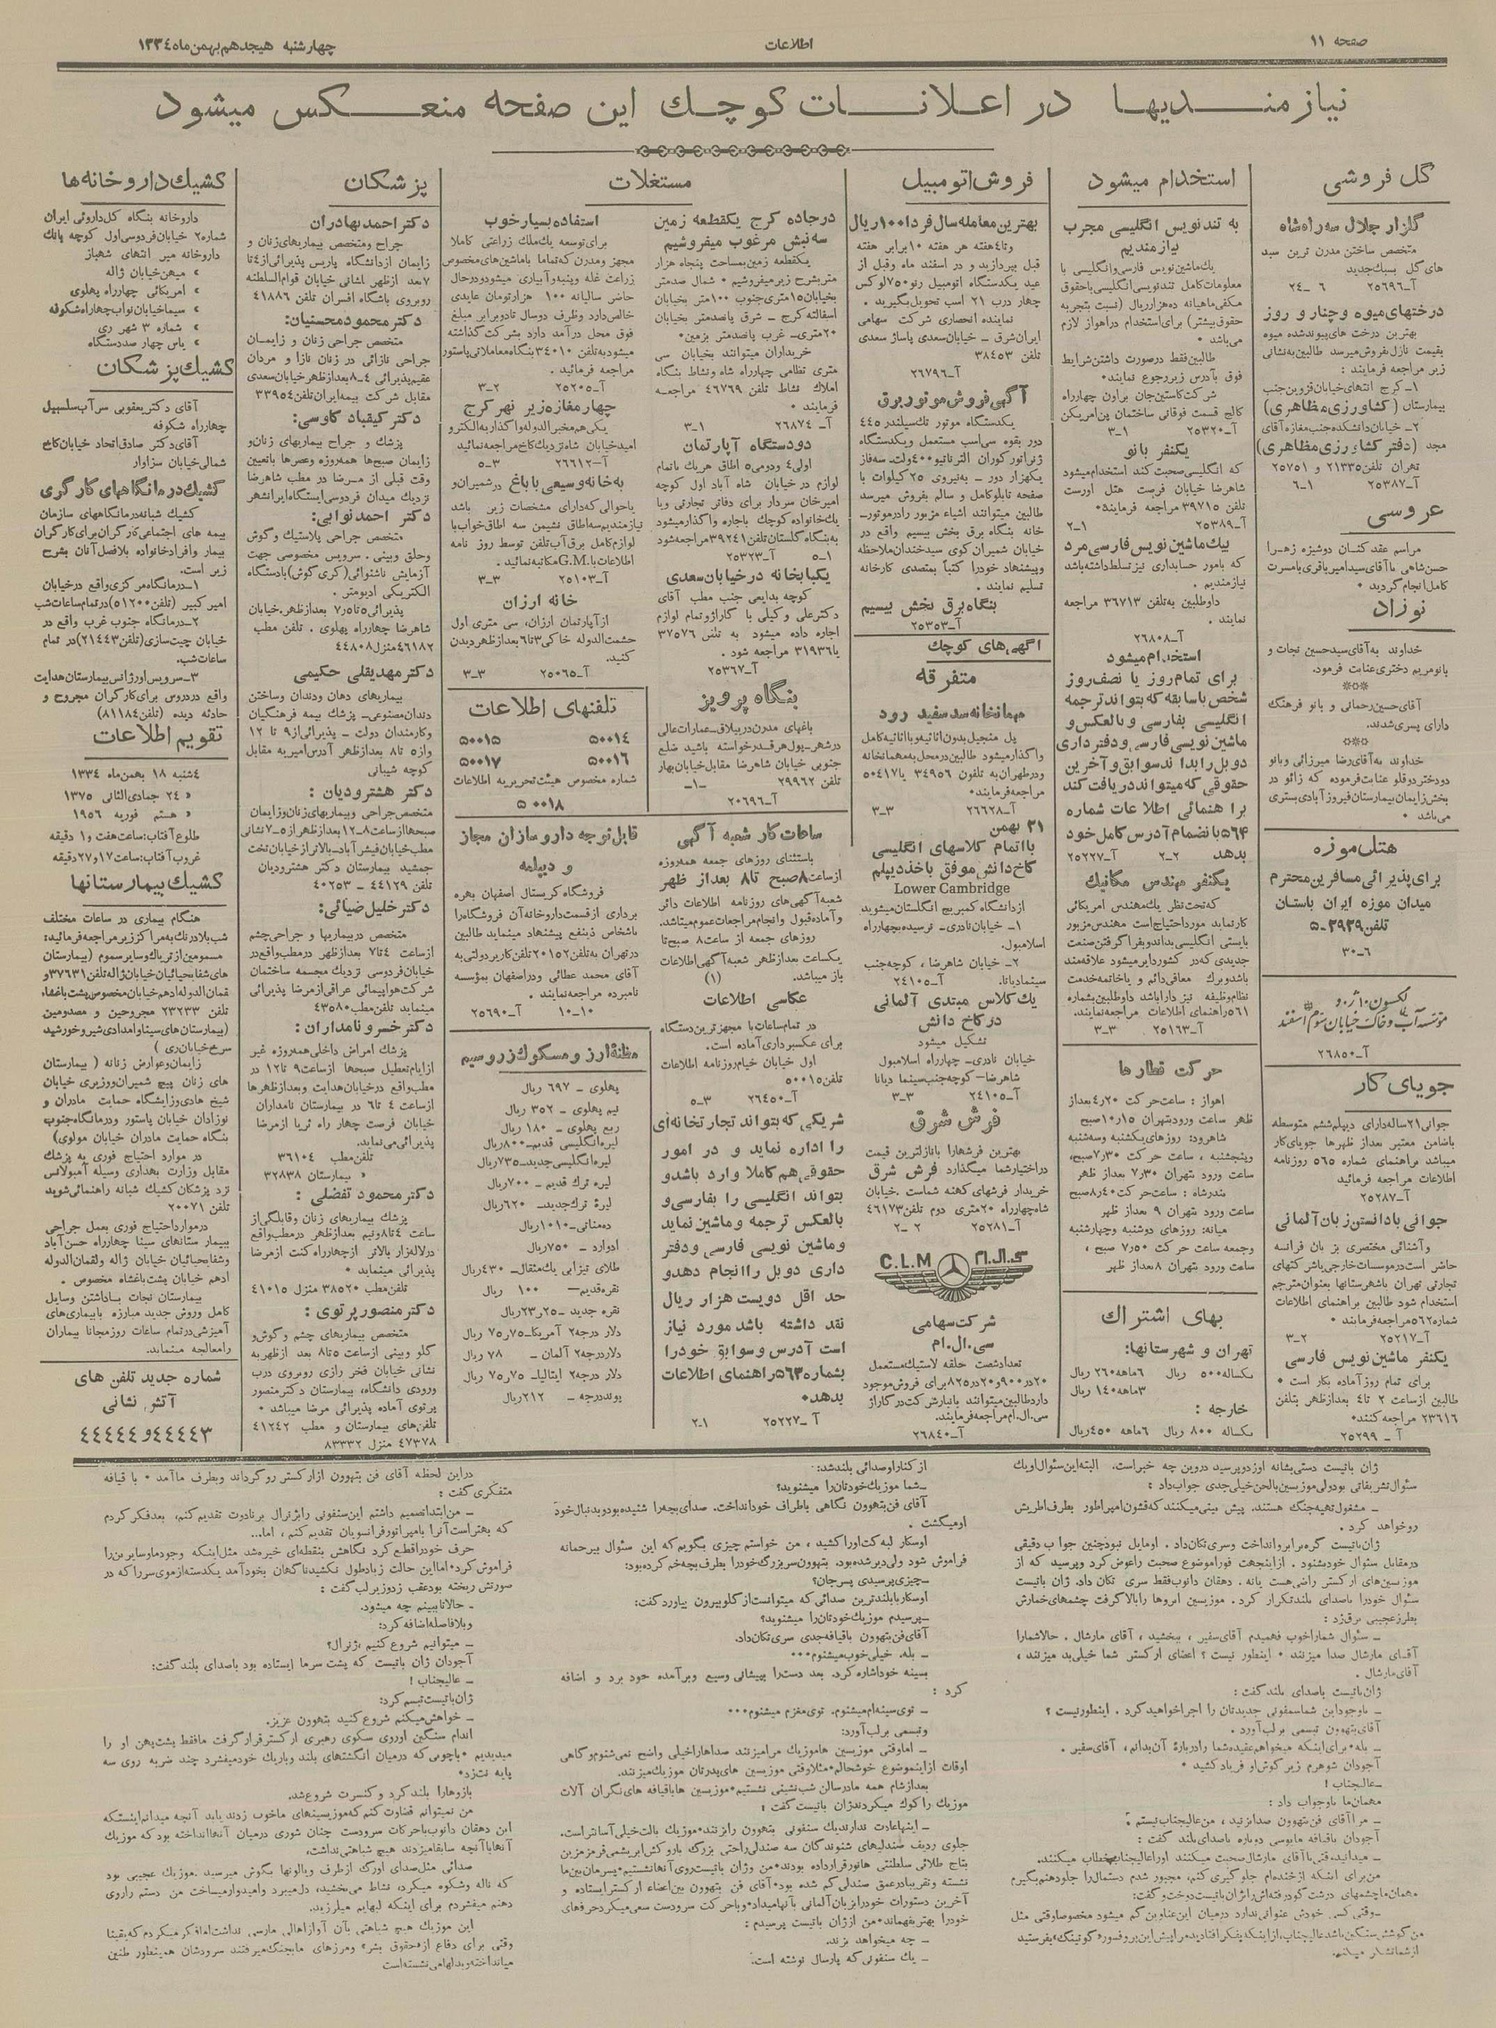 صفحه ۱۱
اطلاعات
چهارشنبه هیجدهم بهمن ماه ۱۳۳۴
نیازمندیها در اعلانات کوچک این صفحه منعکس میشود
گل فروشی
گلزار جلال سه راه شاه
متخصص ساختن مدرن ترین سبد
های گل بسبک جدید
آ-۲۵۶۹۶ ۶-۲۴
درختهای میوه و چنار و روز
بهترین درخت های پیوند شده میوه
بقیمت نازل بفروش میرسد طالبین به نشانی
زیر مراجعه فرمایند :
۱- کرج انتهای خیابان قزوین جنب
بیمارستان (کشاورزی مظاهری)
۲- خیابان دانشکده جنب مغازه آقای
مجد (دفتر کشاورزی مظاهری)
تهران تلفن ۲۱۳۳۵ و ۲۵۷۵۱
آ-۲۵۳۸۷ ۱-۶
عروسی
مراسم عقد کنان دوشیزه زهرا
حسن شاهی با آقای سید امیر باقری با مسرت
کامل انجام گردید •
نوزاد
خداوند به آقای سید حسین نجات و
بانو مریم دختری عنایت فرمود.
آقای حسین رحمانی و بانو فرهنگ
دارای پسری شدند.
خداوند به آقای رضا میرزائی و بانو
دو دختر دوقلو عنایت فرموده که زائو در
بخش زایمان بیمارستان فیروز آبادی بستری
میباشد •
هتل موزه
برای پذیرائی مسافرین محترم
میدان موزه ایران باستان
تلفن ۳۹۳۹-۵
۶-۳۰
آ-۲۶۸۵۰
جویای کار
جوانی ۲۱ ساله دارای دیپلم ششم متوسطه
باضامن معتبر بعداز ظهرها جویای کار
میباشد براهنمای شماره ۵۶۵ روزنامه
اطلاعات مراجعه فرمائید
آ-۲۵۲۸۷
جوانی با دانستن زبان آلمانی
و آشنائی مختصری بزبان فرانسه
حاضر است در موسسات خارجی یا شرکتهای
تجارتی تهران یا شهرستانها بعنوان مترجم
استخدام شود طالبین براهنمای اطلاعات
شماره ۵۶۲ مراجعه فرمایند •
آ-۲۵۲۱۷ ۲-۳
یکنفر ماشین نویس فارسی
برای تمام روز آماده بکار است •
طالبین از ساعت ۲ تا ۴ بعدازظهر بتلفن
۲۳۶۱۶ مراجعه کنند•
آ - ۲۵۲۹۹
استخدام میشود
به تند نویس انگلیسی مجرب
نیازمندیم
یک ماشین نویس فارسی و انگلیسی با
معلومات کامل تند نویسی انگلیسی با حقوق
مکفی ماهیانه ده هزار ریال (نسبت بتجربه
حقوق بیشتر) برای استخدام در اهواز لازم
میباشد •
طالبین فقط در صورت داشتن شرایط
فوق بآدرس زیر رجوع نمایند•
شرکت کاستین جان براون چهارراه
کالج قسمت فوقانی ساختمان پن امریکن
آ-۲۵۳۲۰ ۱-۳
یکنفر بانو
که انگلیسی صحبت کند استخدام میشود
شاهرضا خیابان فرصت هتل اورست
تلفن ۳۹۷۱۵ مراجعه فرمایند•
آ-۲۵۳۸۹ ۱-۲
بیک ماشین نویس فارسی مرد
که بامور حسابداری نیز تسلط داشته باشد
نیازمندیم .
داوطلبین به تلفن ۳۶۷۱۳ مراجعه
نمایند .
آ-۲۶۸۰۸
استخدام میشود
برای تمام روز یا نصف روز
شخص باسابقه که بتواند ترجمه
انگلیسی بفارسی و بالعکس و
ماشین نویسی فارسی و دفترداری
دوبل را بداند سوابق و آخرین
حقوقی که میتواند دریافت کند
براهنمائی اطلاعات شماره
۵۶۴ بانضمام آدرس کامل خود
بدهد ۲-۲ آ-۲۵۲۲۷
یکنفر مهندس مکانیک
که تحت نظر یک مهندس امریکائی
کارنماید مورد احتیاج است مهندس مزبور
بایستی انگلیسی بداند و بفرا گرفتن صنعت
جدیدی که در کشور دایر میشود علاقه مند
باشد و برگ معافی دائم و یا خاتمه خدمت
نظام وظیفه نیز دارا باشد داوطلبین بشماره
۵۶۱ راهنمای اطلاعات مراجعه نمایند.
آ-۲۵۱۶۳ ۳-۳
حرکت قطارها
اهواز : ساعت حرکت ۴ر۲۰ بعداز
ظهر ساعت ورود تهران ۱۰ر۱۵ صبح
شاهرود: روزهای یکشنبه و سه شنبه
و پنجشنبه ، ساعت حرکت ۷ر۳۰ صبح،
ساعت ورود تهران ۷ر۳۰ بعداز ظهر
بندرشاه : ساعت حرکت ۸ر۴۰ صبح
ساعت ورود بتهران ۹ بعداز ظهر
میانه: روزهای دوشنبه و چهارشنبه
و جمعه ساعت حرکت ۷ر۵۰ صبح ،
ساعت ورود بتهران ۸ بعداز ظهر
بهای اشتراک
تهران و شهرستانها:
یکساله ۵۰۰ ریال ۶ ماهه ۲۶۰ ریال
۳ ماهه ۱۴۰ ریال
خارجه :
یکساله ۸۰۰ ریال ۶ ماهه ۴۵۰ ریال
فروش اتومبیل
بهترین معامله سال فردا ۱۰۰ ریال
و تا ۴ هفته هر هفته ۱۰ برابر هفته
قبل بپردازید و در اسفند ماه و قبل از
عید یکدستگاه اتومبیل رنو ۷۵۰ لوکس
چهار درب ۲۱ اسب تحویل بگیرید .
نماینده انحصاری شرکت سهامی
ایران شرق - خیابان سعدی پاساژ سعدی
تلفن ۳۸۴۵۳
آ-۲۶۷۹۶
آگهی فروش موتور برق
یکدستگاه موتور تک سیلندر ۴۴۵
دور بقوه سی اسب مستعمل و یکدستگاه
ژنراتور کوران الترناتیو ۴۰۰ ولت سه فاز
یکهزار دور - به نیروی ۲۵ کیلوات با
صفحه تابلو کامل و سالم بفروش میرسد
طالبین میتوانند اشیاء مزبور را در موتور-
خانه بنگاه برق بخش بیسیم واقع در
خیابان شمیران کوی سید خندان ملاحظه
و پیشنهاد خود را کتباً بمتصدی کارخانه
تسلیم نمایند .
بنگاه برق بخش بیسیم
آ-۲۵۳۵۳
آگهی های کوچک
متفرقه
مهمانخانه سد سفید رود
پل منجیل بدون اثاثیه و با اثاثیه کامل
واگذار میشود طالبین در محل به مهمانخانه
و در طهران به تلفون ۳۴۹۵۶ یا ۵۰۴۱۷
مراجعه فرمایند•
آ-۲۶۶۲۸ ۳-۳
۲۱ بهمن
با اتمام کلاسهای انگلیسی
کاخ دانش موفق باخذ دیپلم
Lower Cambridge
از دانشگاه کمبریج انگلستان میشوید
۱- خیابان نادری- نرسیده بچهارراه
اسلامبول.
۲- خیابان شاهرضا ، کوچه جنب
سینما دیانا. آ-۲۴۱۰۵
یک کلاس مبتدی آلمانی
در کاخ دانش
تشکیل میشود
خیابان نادری- چهارراه اسلامبول
شاهرضا- کوچه جنب سینما دیانا
آ-۲۴۱۰۵ ۳-۳
فرش شرق
بهترین فرشها را با نازلترین قیمت
در اختیار شما میگذارد فرش شرق
خریدار فرشهای کهنه شماست .خیابان
شاه چهارراه ۲۰ متری دوم تلفن ۴۶۱۷۳
آ-۲۵۲۸۱ ۲-۲
C.L.M سی.ال.ام
شرکت سهامی
سی.ال.ام
تعدادشصت حلقه لاستیک مستعمل
۲۰ در ۹۰۰ و ۲۰ در ۸۲۵ برای فروش موجود
دارد طالبین میتوانند بانبار شرکت در گاراژ
سی.ال.ام مراجعه فرمایند.
آ-۲۶۸۴۰
مستغلات
در جاده کرج یکقطعه زمین
سه نبش مرغوب میفروشیم
یکقطعه زمین بمساحت پنجاه هزار
متر بشرح زیر میفروشیم • شمال صدمتر
بخیابان ۱۵ متری جنوب ۱۰۰ متر بخیابان
اسفالته کرج - شرق پانصدمتر بخیابان
۲۰ متری- غرب پانصدمتر بزمین•
خریداران میتوانند بخیابان سی
متری نظامی چهارراه شاه و نشاط بنگاه
املاک نشاط تلفن ۴۶۷۶۹ مراجعه
فرمایند •
آ-۲۶۸۷۴ ۱-۳
دو دستگاه آپارتمان
اولی ۴ و دومی ۵ اطاق هریک باتمام
لوازم در خیابان شاه آباد اول کوچه
امیرخان سردار برای دفاتر تجارتی و یا
یک خانواده کوچک باجاره واگذار میشود
به بنگاه گلستان تلفن ۳۹۲۴۱ مراجعه شود
۱-۵ آ-۲۵۳۲۳
یکبابخانه در خیابان سعدی
کوچه بدایعی جنب مطب آقای
دکتر علی وکیلی با گاراژ و تمام لوازم
اجاره داده میشود به تلفن ۳۷۵۷۶
یا ۳۱۹۳۶ مراجعه شود .
آ-۲۵۳۶۷
بنگاه پرویز
باغهای مدرن در ییلاق-عمارات عالی
در شهر-پول هرقدر خواسته باشید ضلع
جنوبی خیابان شاهرضا مقابل خیابان بهار
تلفن ۲۹۹۶۲ -۱-
آ-۲۰۶۹۶
ساعات کار شعبه آگهی
باستثنای روزهای جمعه همه روزه
از ساعت ۸ صبح تا ۸ بعداز ظهر
شعبه آگهی های روزنامه اطلاعات دائر
و آماده قبول و انجام مراجعات عموم میباشد.
روزهای جمعه از ساعت ۸ صبح تا
یکساعت بعدازظهر شعبه آگهی اطلاعات
باز میباشد. (۱)
عکاسی اطلاعات
در تمام ساعات با مجهزترین دستگاه
برای عکسبرداری آماده است.
اول خیابان خیام روزنامه اطلاعات
تلفن ۵۰۰۱۵
آ-۲۶۴۵۰ ۳-۵
شریکی که بتواند تجارتخانه ای
را اداره نماید و در امور
حقوقی هم کاملا وارد باشد و
بتواند انگلیسی را بفارسی و
بالعکس ترجمه و ماشین نماید
و ماشین نویسی فارسی و دفتر
داری دوبل را انجام دهد و
حد اقل دویست هزار ریال
نقد داشته باشد مورد نیاز
است آدرس و سوابق خود را
بشماره ۵۶۳ راهنمای اطلاعات
بدهد•
آ - ۲۵۲۲۷ ۱-۲
استفاده بسیار خوب
برای توسعه یک ملک زراعتی کاملا
مجهز و مدرن که تماما با ماشین های مخصوص
زراعت غله و پنبه و آبیاری میشود و در حال
حاضر سالیانه ۱۰۰ هزار تومان عایدی
خالص دارد و ظرف دو سال تا دو برابر مبلغ
فوق محل درآمد دارد بشرکت گذاشته
میشود به تلفن ۳۴۰۱۰ بنگاه معاملاتی پاستور
مراجعه فرمائید .
آ-۲۵۲۰۵ ۲-۳
چهار مغازه زیر نهر کرج
یکی هم مخبرالدوله واگذار به الکترو
امید خیابان شاه نزدیک کاخ مراجعه نمائید
آ-۲۶۶۱۲ ۳-۵
به خانه وسیعی با باغ در شمیران و
یا حوالی که دارای مشخصات زیر باشد
نیازمندیم سه اطاق نشیمن سه اطاق خواب با
لوازم کامل برق آب تلفن توسط روز نامه
اطلاعات با G.M. مکاتبه نمائید .
آ-۲۵۱۰۳ ۳-۳
خانه ارزان
از آپارتمان ارزان، سی متری اول
حشمت الدوله خاکی ۳ تا ۶ بعدازظهر دیدن
کنید.
آ-۲۵۰۶۵ ۳-۳
تلفنهای اطلاعات
۵۰۰۱۴ ۵۰۰۱۵
۵۰۰۱۶ ۵۰۰۱۷
شماره مخصوص هیئت تحریریه اطلاعات
۵۰۰۱۸
قابل توجه داروسازان مجاز
و دیپلمه
فروشگاه کریستال اصفهان بهره
برداری از قسمت داروخانه آن فروشگاه را
باشخاص ذینفع پیشنهاد مینماید طالبین
در تهران به تلفن ۲۰۱۵۲ تلفن کاربر دولتی به
آقای محمد عطائی و در اصفهان بمؤسسه
نامبرده مراجعه نمایند .
۱۰-۱۰ آ-۲۵۶۹۰
مظنهٔ ارز و مسکوک زر و سیم
پهلوی - ۶۹۷ ریال
نیم پهلوی - ۳۵۲ ریال
ربع پهلوی - ۱۸۰ ریال
لیره انگلیسی قدیم- ۸۰۰ ریال
لیره انگلیسی جدید- ۷۳۵ ریال
لیره ترک قدیم - ۷۰۰ ریال
لیرهٔ ترک جدید- ۶۲۰ ریال
ده مناتی- ۱۰۱۰ ریال
ادوارد - ۷۵۰ ریال
طلای تیزابی یک مثقال- ۴۳۰ ریال
نقره قدیم- ۱۰۰ ریال
نقره جدید - ۲۳ر۲۵ ریال
دلار درجه ۲ آمریکا- ۷۵ر۷۵ ریال
دلار درجه ۲ آلمان - ۷۸ ریال
دلار درجه ۲ ایتالیا- ۷۵ر۷۵ ریال
پوند درجه - ۲۱۲ ریال
پزشکان
دکتر احمد بهادران
جراح و متخصص بیماریهای زنان و
زایمان از دانشگاه پاریس پذیرائی از ۴ تا
۷ بعد ازظهر نشانی خیابان قوام السلطنه
روبروی باشگاه افسران تلفن ۴۱۸۸۶
دکتر محمود محسنیان:
متخصص جراحی زنان و زایمان
جراحی نازائی در زنان نازا و مردان
عقیم پذیرائی ۴-۸ بعدازظهر خیابان سعدی
مقابل شرکت بیمه ایران تلفن ۳۳۹۵۴
دکتر کیقباد کاوسی:
پزشک و جراح بیماریهای زنان و
زایمان صبحها همه روزه و عصرها با تعیین
وقت قبلی از مرضا در مطب شاهرضا
نزدیک میدان فردوسی ایستگاه ایرانشهر
دکتر احمد نوابی:
متخصص جراحی پلاستیک و گوش
و حلق و بینی . سرویس مخصوصی جهت
آزمایش ناشنوائی (کری گوش) با دستگاه
الکتریکی ادیومتر .
پذیرائی ۵ تا ۷ر۵ بعدازظهر.خیابان
شاهرضا چهارراه پهلوی . تلفن مطب
۴۶۱۸۲ منزل ۴۴۸۰۸
دکتر مهدیقلی حکیمی
بیماریهای دهان و دندان و ساختن
دندان مصنوعی- پزشک بیمه فرهنگیان
و کارمندان دولت - پذیرائی از ۹ تا ۱۲
و از ۵ تا ۸ بعداز ظهر آدرس امیریه مقابل
کوچه شیبانی
دکتر هشترودیان :
متخصص جراحی و بیماریهای زنان و زایمان
صبحها از ساعت ۸-۱۲ بعدازظهر از ۵-۷ نشانی
مطب خیابان فیشرآباد- بالاتر از خیابان تخت
جمشید بیمارستان دکتر هشترودیان
تلفن ۴۴۱۲۹ - ۴۰۲۵۳
دکتر خلیل ضیائی:
متخصص در بیماریها و جراحی چشم
از ساعت ۴ تا ۷ بعدازظهر در مطب واقع در
خیابان فردوسی نزدیک مجسمه ساختمان
شرکت هواپیمائی عراقی از مرضا پذیرائی
مینماید تلفن مطب ۴۳۵۸۰
دکتر خسرو نامداران :
پزشک امراض داخلی همه روزه غیر
از ایام تعطیل صبحها از ساعت ۹ تا ۱۲ در
مطب واقع در خیابان هدایت و بعدازظهرها
از ساعت ۴ تا ۶ در بیمارستان نامداران
خیابان فرصت چهار راه ثریا از مرضا
پذیرائی می نماید.
تلفن مطب ۳۶۱۰۴
» بیمارستان ۳۲۸۳۸
دکتر محمود تفضلی :
پزشک بیماریهای زنان و قابلگی از
ساعت ۴ تا ۸ و نیم بعدازظهر در مطب واقع
در لاله زار بالاتر از چهارراه کنت از مرضا
پذیرائی مینماید •
تلفن مطب ۳۸۵۲۰ منزل ۴۱۰۱۵
دکتر منصور پرتوی :
متخصص بیماریهای چشم و گوش و
گلو و بینی از ساعت ۵ تا ۸ بعد ازظهر به
نشانی خیابان فخر رازی روبروی درب
ورودی دانشگاه، بیمارستان دکتر منصور
پرتوی آماده پذیرائی مرضا میباشد •
تلفن های بیمارستان و مطب ۴۱۲۴۲
۴۷۳۷۸ منزل ۸۳۳۳۲
کشیک داروخانه ها
داروخانه بنگاه کل داروئی ایران
شماره ۲ خیابان فردوسی اول کوچه بانک
داروخانه میر انتهای شهباز
» میهن خیابان ژاله
» امریکائی چهارراه پهلوی
» سینما خیابان نواب چهارراه شکوفه
» شماره ۳ شهر ری
» یاس چهار صد دستگاه
کشیک پزشکان
آقای دکتر یعقوبی سرآب سلسبیل
چهارراه شکوفه
آقای دکتر صادق اتحاد خیابان کاخ
شمالی خیابان سزاوار
کشیک درمانگاههای کارگری
کشیک شبانه درمانگاههای سازمان
بیمه های اجتماعی کارگران برای کارگران
بیمار و افراد خانواده بلافصل آنان بشرح
زیر است.
۱- درمانگاه مرکزی واقع در خیابان
امیر کبیر (تلفن ۵۱۲۰۰) در تمام ساعات شب
۲- درمانگاه جنوب غرب واقع در
خیابان چیت سازی (تلفن ۲۱۴۴۳) در تمام
ساعات شب.
۳- سرویس اورژانس بیمارستان هدایت
واقع در دروس برای کارگران مجروح و
حادثه دیده (تلفن ۸۱۱۸۴)
تقویم اطلاعات
۴شنبه ۱۸ بهمن ماه ۱۳۳۴
» ۲۴ جمادی الثانی ۱۳۷۵
» هشتم فوریه ۱۹۵۶
طلوع آفتاب : ساعت هفت و ۱ دقیقه
غروب آفتاب: ساعت ۱۷ و ۲۷ دقیقه
کشیک بیمارستانها
هنگام بیماری در ساعات مختلف
شب بلادرنگ به مراکز زیر مراجعه فرمائید:
مسمومین از تریاک و سایر سموم (بیمارستان
های شفا یحیائیان خیابان ژاله تلفن ۳۷۶۳۱ و
لقمان الدوله ادهم خیابان مخصوص پشت باغشاه
تلفن ۲۳۲۳۳ مجروحین و مصدومین
(بیمارستان های سینا و امدادی شیر و خورشید
سرخ خیابان ری )
زایمان و عوارض زنانه ( بیمارستان
های زنان پیچ شمیران و وزیری خیابان
شیخ هادی و زایشگاه حمایت مادران و
نوزادان خیابان پاستور و درمانگاه جنوب
بنگاه حمایت مادران خیابان مولوی)
در موارد احتیاج فوری به پزشک
مقابل وزارت بهداری وسیله آمبولانس
نزد پزشکان کشیک شبانه راهنمائی شوید
تلفن ۲۰۰۷۱
در موارد احتیاج فوری بعمل جراحی
ببیمارستانهای سینا چهارراه حسن آباد
و شفا یحیائیان خیابان ژاله و لقمان الدوله
ادهم خیابان پشت باغشاه مخصوص .
بیمارستان نجات با داشتن وسایل
کامل و روش جدید مبارزه با بیماری های
آمیزشی در تمام ساعات روز مجانا بیماران
را معالجه مینماید.
شماره جدید تلفن های
آتش نشانی
۴۴۴۴۳ و ۴۴۴۴۴
ژان باتیست دستی بشانه او زد و پرسید در وین چه خبر است. البته این سئوال او یک
سئوال تشریفاتی بود ولی موزیسین بالحن خیلی جدی جواب داد :
- مشغول تهیه جنگ هستند. پیش بینی میکنند که قشون امپراطور بطرف اطریش
رو خواهد کرد .
ژان باتیست گره برابر و انداخت و سری تکان داد. او مایل نبود چنین جواب دقیقی
در مقابل سئوال خود بشنود . از اینجهت فورا موضوع صحبت را عوض کرد و پرسید که از
موزیسین های ارکستر راضی هست یا نه. دهقان دانوب فقط سری تکان داد. ژان باتیست
سئوال خود را باصدای بلند تکرار کرد . موزیسین ابروها را بالا گرفت چشمهای خمارش
بطرز عجیبی برق زد :
- سئوال شما را خوب فهمیدم آقای سفیر ، ببخشید ، آقای مارشال . حالا شما را
آقای مارشال صدا میزنند • اینطور نیست ؟ اعضای ارکستر شما خیلی بد میزنند ،
آقای مارشال .
ژان باتیست باصدای بلند گفت :
- باوجود این شما سمفونی جدیدتان را اجرا خواهید کرد . اینطور نیست ؟
آقای بتهوون تبسمی بر لب آورد .
- بله • برای اینکه میخواهم عقیده شما را درباره آن بدانم ، آقای سفیر .
آجودان شوهرم زیر گوش او فریاد کشید •
-عالیجناب !
مهمان ما باو جواب داد :
- مرا آقای فن بتهوون صدا بزنید ، من عالیجناب نیستم .
آجودان باقیافه مأیوسی دوباره باصدای بلند گفت :
- میدانید وقتی با آقای مارشال صحبت میکنند او را عالیجناب خطاب میکنند.
من برای اینکه از خنده ام جلوگیری کنم، مجبور شدم دستمال را جلو دهنم بگیرم
مهمان ما چشمهای درشت گود رفته اش را بژان باتیست دوخت و گفت:
-وقتی کسی خودش عنوانی ندارد درمیان این عناوین گم میشود مخصوصا وقتی مثل
از کنار او صدائی بلند شد:
-شما موزیک خودتان را میشنوید؟
آقای فن بتهوون نگاهی باطراف خود انداخت. صدای بچه را شنیده بود و بدنبال خود
او میگشت .
اوسکار لبه کت او را کشید ، من خواستم چیزی بگویم که این سئوال بیرحمانه
فراموش شود ولی دیر شده بود. بتهوون سر بزرگ خود را بطرف بچه خم کرده بود:
-چیزی پرسیدی پسرجان؟
اوسکار بابلندترین صدائی که میتوانست از گلو بیرون بیاورد گفت:
-پرسیدم موزیک خودتان را میشنوید؟
آقای فن بتهوون باقیافه جدی سری تکان داد.
- بله. خیلی خوب میشنوم•••
بسینه خود اشاره کرد. بعد دست را بپیشانی وسیع و برآمده خود برد و اضافه
کرد :
- توی سینه ام میشنوم. توی مغزم میشنوم•••
و تبسمی بر لب آورد:
- اما وقتی موزیسین ها موزیک مرا میزنند صداها را خیلی واضح نمی شنوم و گاهی
اوقات از این موضوع خوشحالم•مثلا وقتی موزیسین های پدرتان موزیک میزنند.
بعد از شام همه ما در سالن شب نشینی نشستیم•موزیسین ها باقیافه های نگران آلات
موزیک را کوک میکردند ژان باتیست گفت :
- اینها عادت ندارند یک سنفونی بتهوون را بزنند•موزیک بالت خیلی آسانتر است.
جلوی ردیف صندلیهای شنوندگان سه صندلی راحتی بزرگ باروکش ابریشمی قرمز مزین
بتاج طلائی سلطنتی هانور قرار داده بودند•من و ژان باتیست روی آنها نشستیم•پسرمان بین ما
نشسته و تقریبا در عمق صندلی گم شده بود•آقای فن بتهوون بین اعضاء ارکستر ایستاده و
آخرین دستورات خود را بزبان آلمانی بآنها میداد•و باحرکت سرودست سعی میکرد حرفهای
خود را بهتر بفهماند•من از ژان باتیست پرسیدم :
- چه میخواهد بزند.
- یک سنفونی که پارسال نوشته است.
در این لحظه آقای فن بتهوون از ارکستر رو گرداند و بطرف ما آمد • با قیافه
متفکری گفت :
- من ابتدا تصمیم داشتم این سنفونی را بژنرال برنادوت تقدیم کنم، بعد فکر کردم
که بهتر است آنرا بامپراتور فرانسویان تقدیم کنم ، اما...
حرف خود را قطع کرد نگاهش بنقطه ای خیره شد مثل اینکه وجود ما و سایرین را
فراموش کرد•اما این حالت زیاد طول نکشید ناگهان بخود آمد یکدسته از موی سر را که در
صورتش ریخته بود عقب زد و زیر لب گفت :
- حالا تا ببینم چه میشود.
و بلافاصله اضافه کرد:
- میتوانیم شروع کنیم ،ژنرال؟
آجودان ژان باتیست که پشت سر ما ایستاده بود باصدای بلند گفت:
- عالیجناب !
ژان باتیست تبسم کرد:
- خواهش میکنم شروع کنید بتهوون عزیز.
اندام سنگین او روی سکوی رهبری ارکستر قرار گرفت مافقط پشت پهن او را
میدیدیم •باچوبی که درمیان انگشتهای بلند و باریک خود میفشرد چند ضربه روی سه
پایه نت زد•
بازوها را بلند کرد و کنسرت شروع شد.
من نمیتوانم قضاوت کنم که موزیسینهای ما خوب زدند یا بد آنچه میدانم اینستکه
این دهقان دانوب باحرکات سرودست چنان شوری درمیان آنها انداخته بود که موزیک
آنها با آنچه سابقا میزدند هیچ شباهتی نداشت،
صدائی مثل صدای اورگ از طرف ویالونها بگوش میرسید .موزیک عجیبی بود
که ناله و شکوه میکرد، نشاط می بخشید، دل میبرد و امیدوار میساخت من دستم را روی
دهنم میفشردم برای اینکه لبهایم میلرزید.
این موزیک هیچ شباهتی بآن آواز اهالی مارسی نداشت اما فکر میکردم که یقینا
وقتی برای دفاع از «حقوق بشر» و مرزهای ما بجنگ میرفتند سرودشان همینطور طنین
میانداخته و بدلها می نشسته است